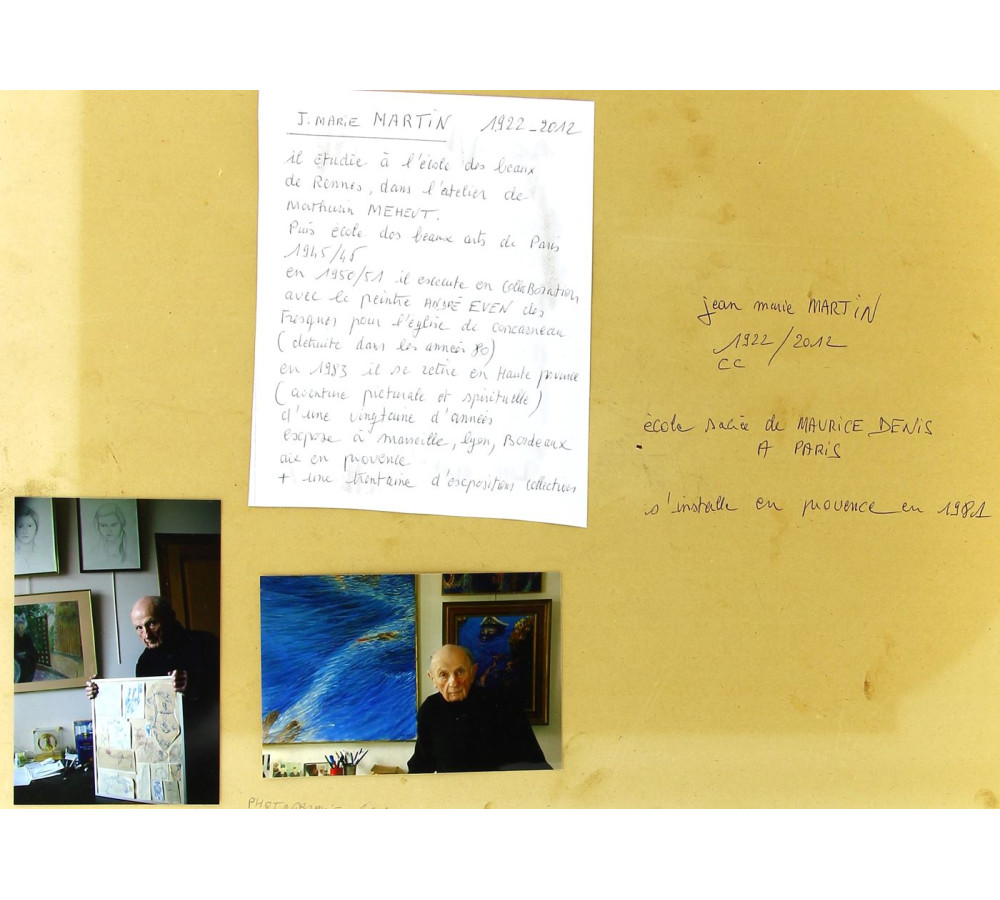 J. MARIE MARTIN 1922_2012
il étudie à l'école des beaux
de Rennes, dans l'atelier de
Mathurin MEHEUT.
Puis école des beaux arts de Paris
1945/46
en 1950/51 il execute en collaboration
avec le peintre ANDRÉ EVEN des
Fresques pour l'église de concarneau
(detruite dans les années 80)
en 1983 il se retire en Haute provence
(aventure picturale et spirituelle)
d'une vingtaine d'années
expose à marseille, lyon, Bordeaux
aix en provence
+ une trentaine d'expositions collectives
jean marie MARTIN
1922/2012
CC
école sacrée de MAURICE DENIS
A PARIS
s'installe en provence en 1981